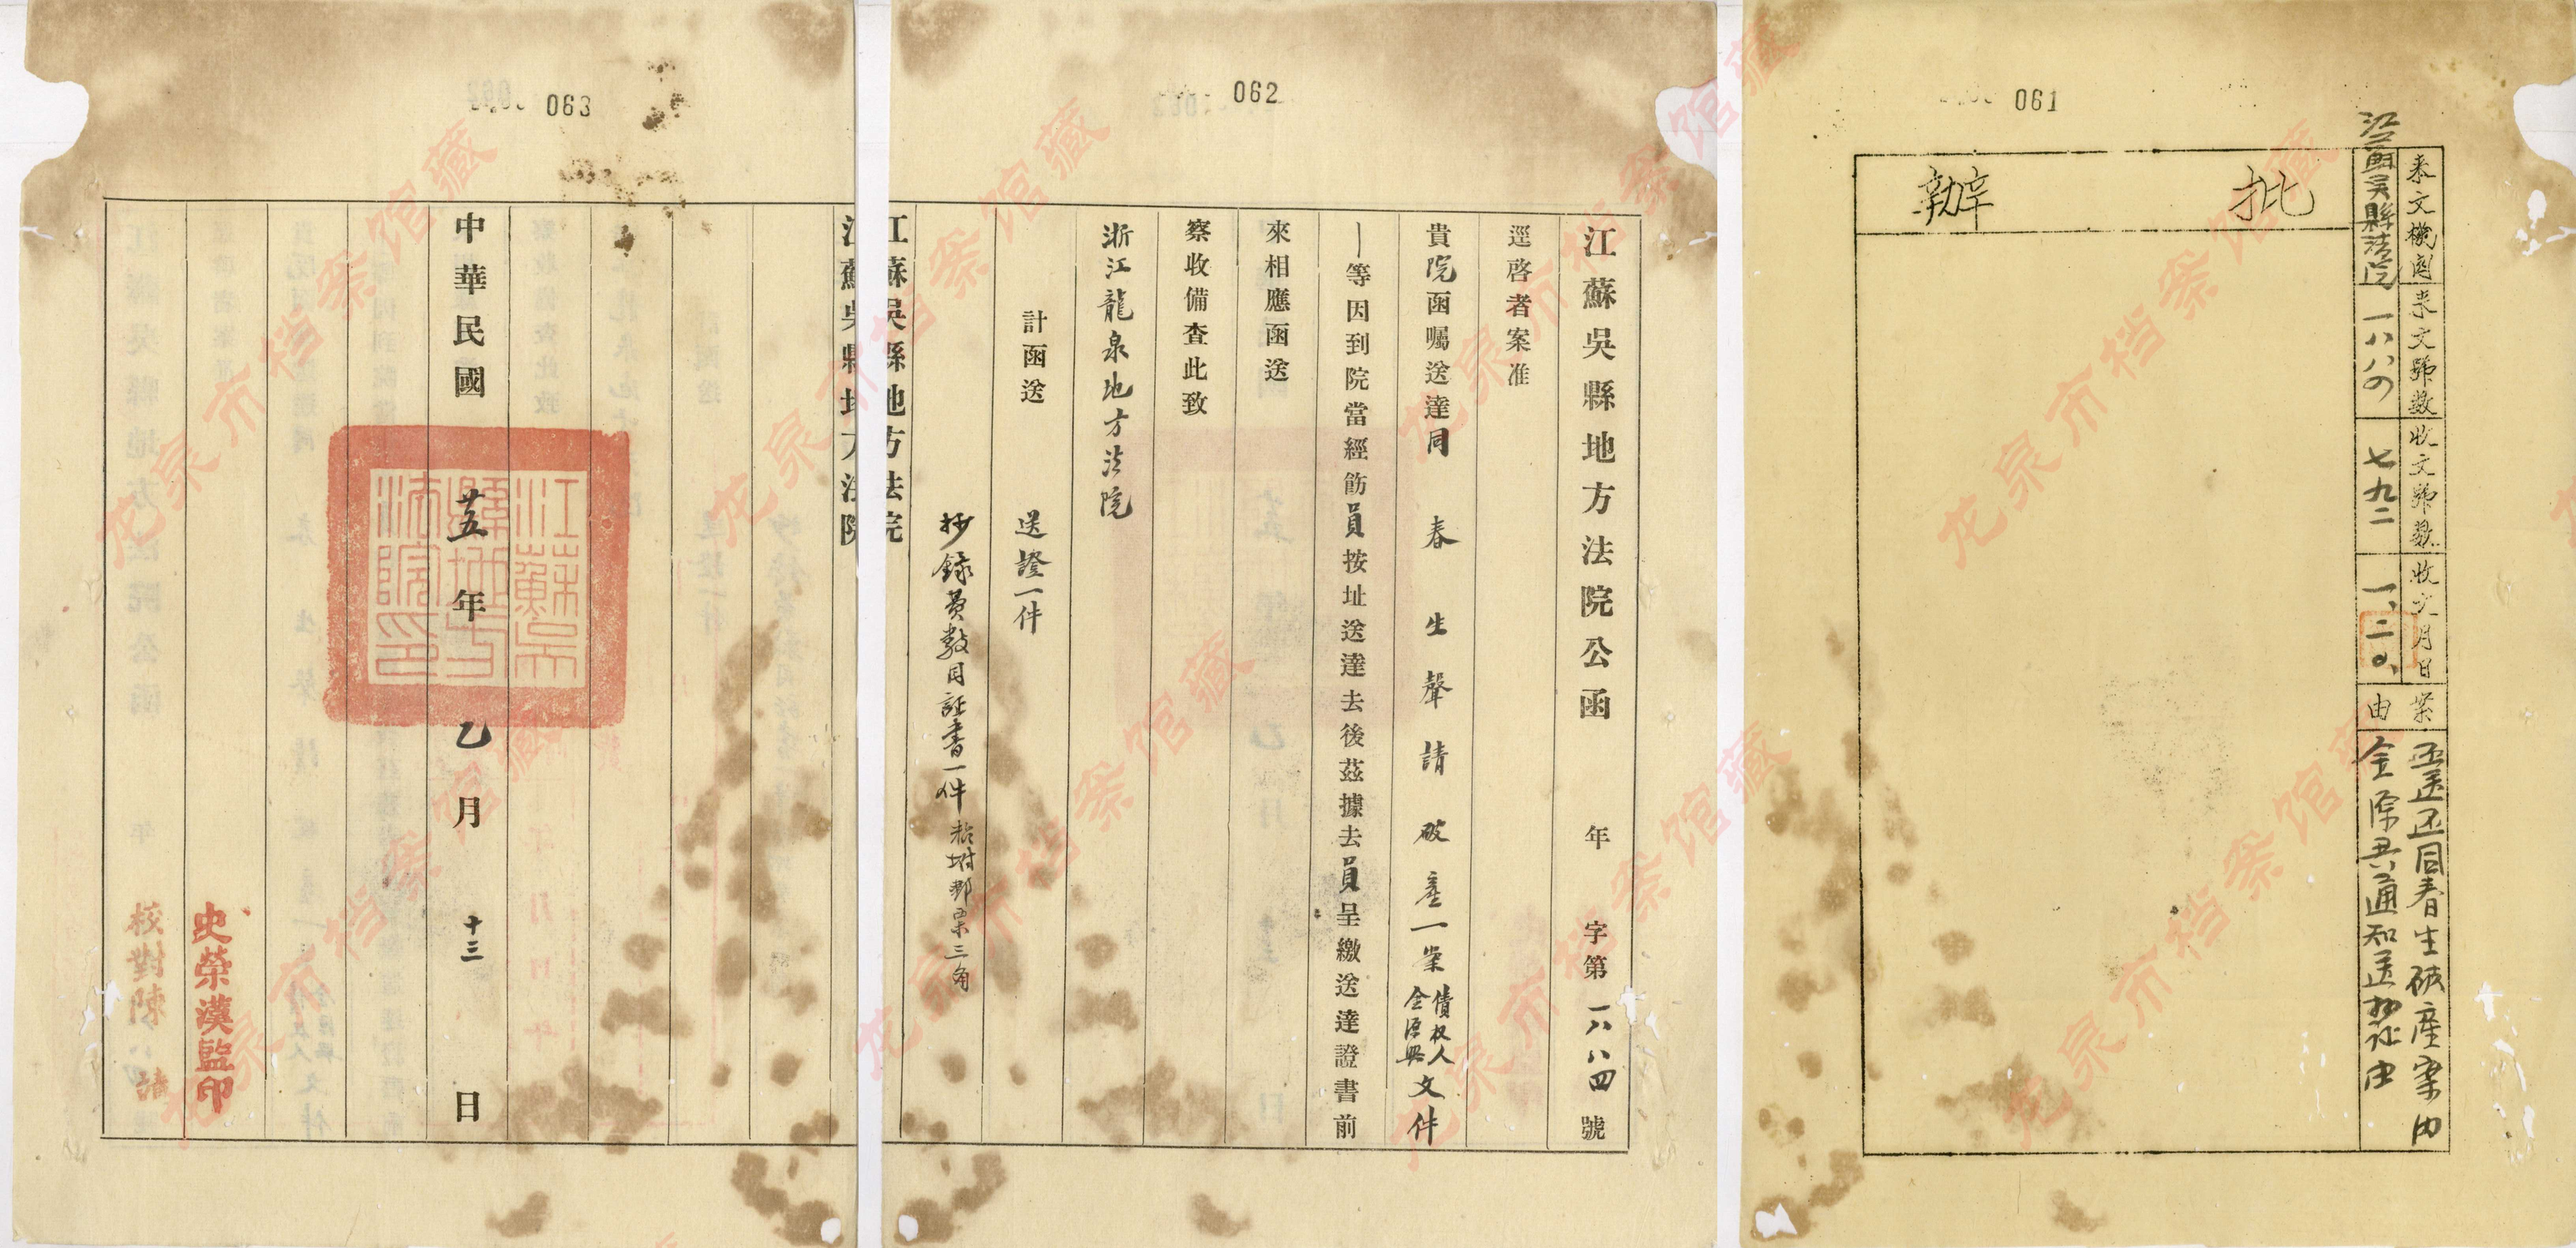 061
來文機關
江蘇吳縣法院
來文號數
一八八四
收文號數
七九二
收文月日
一、二〇、
案由
函送还同春生破產案内
全源興通知送物证由
批
辦
062
江蘇吳縣地方法院公函 年 字第一八八四號
逕啓者案准
貴院函囑送達同春生聲請破產一案債权人全源興文件
一等因到院當經飭員按址送達去後茲據去員呈繳送達證書前
來相應函送
察收備查此致
浙江龍泉地方法院
計函送 送證一件
抄錄員數目証書一件 粘坿郵票三角
江蘇吳縣地方法院
063
江蘇吳縣地方法院
中華民國廿五年乙月十三日
江蘇吳縣地方法院印
史榮漢監印
校對陳
龙泉市档案馆藏